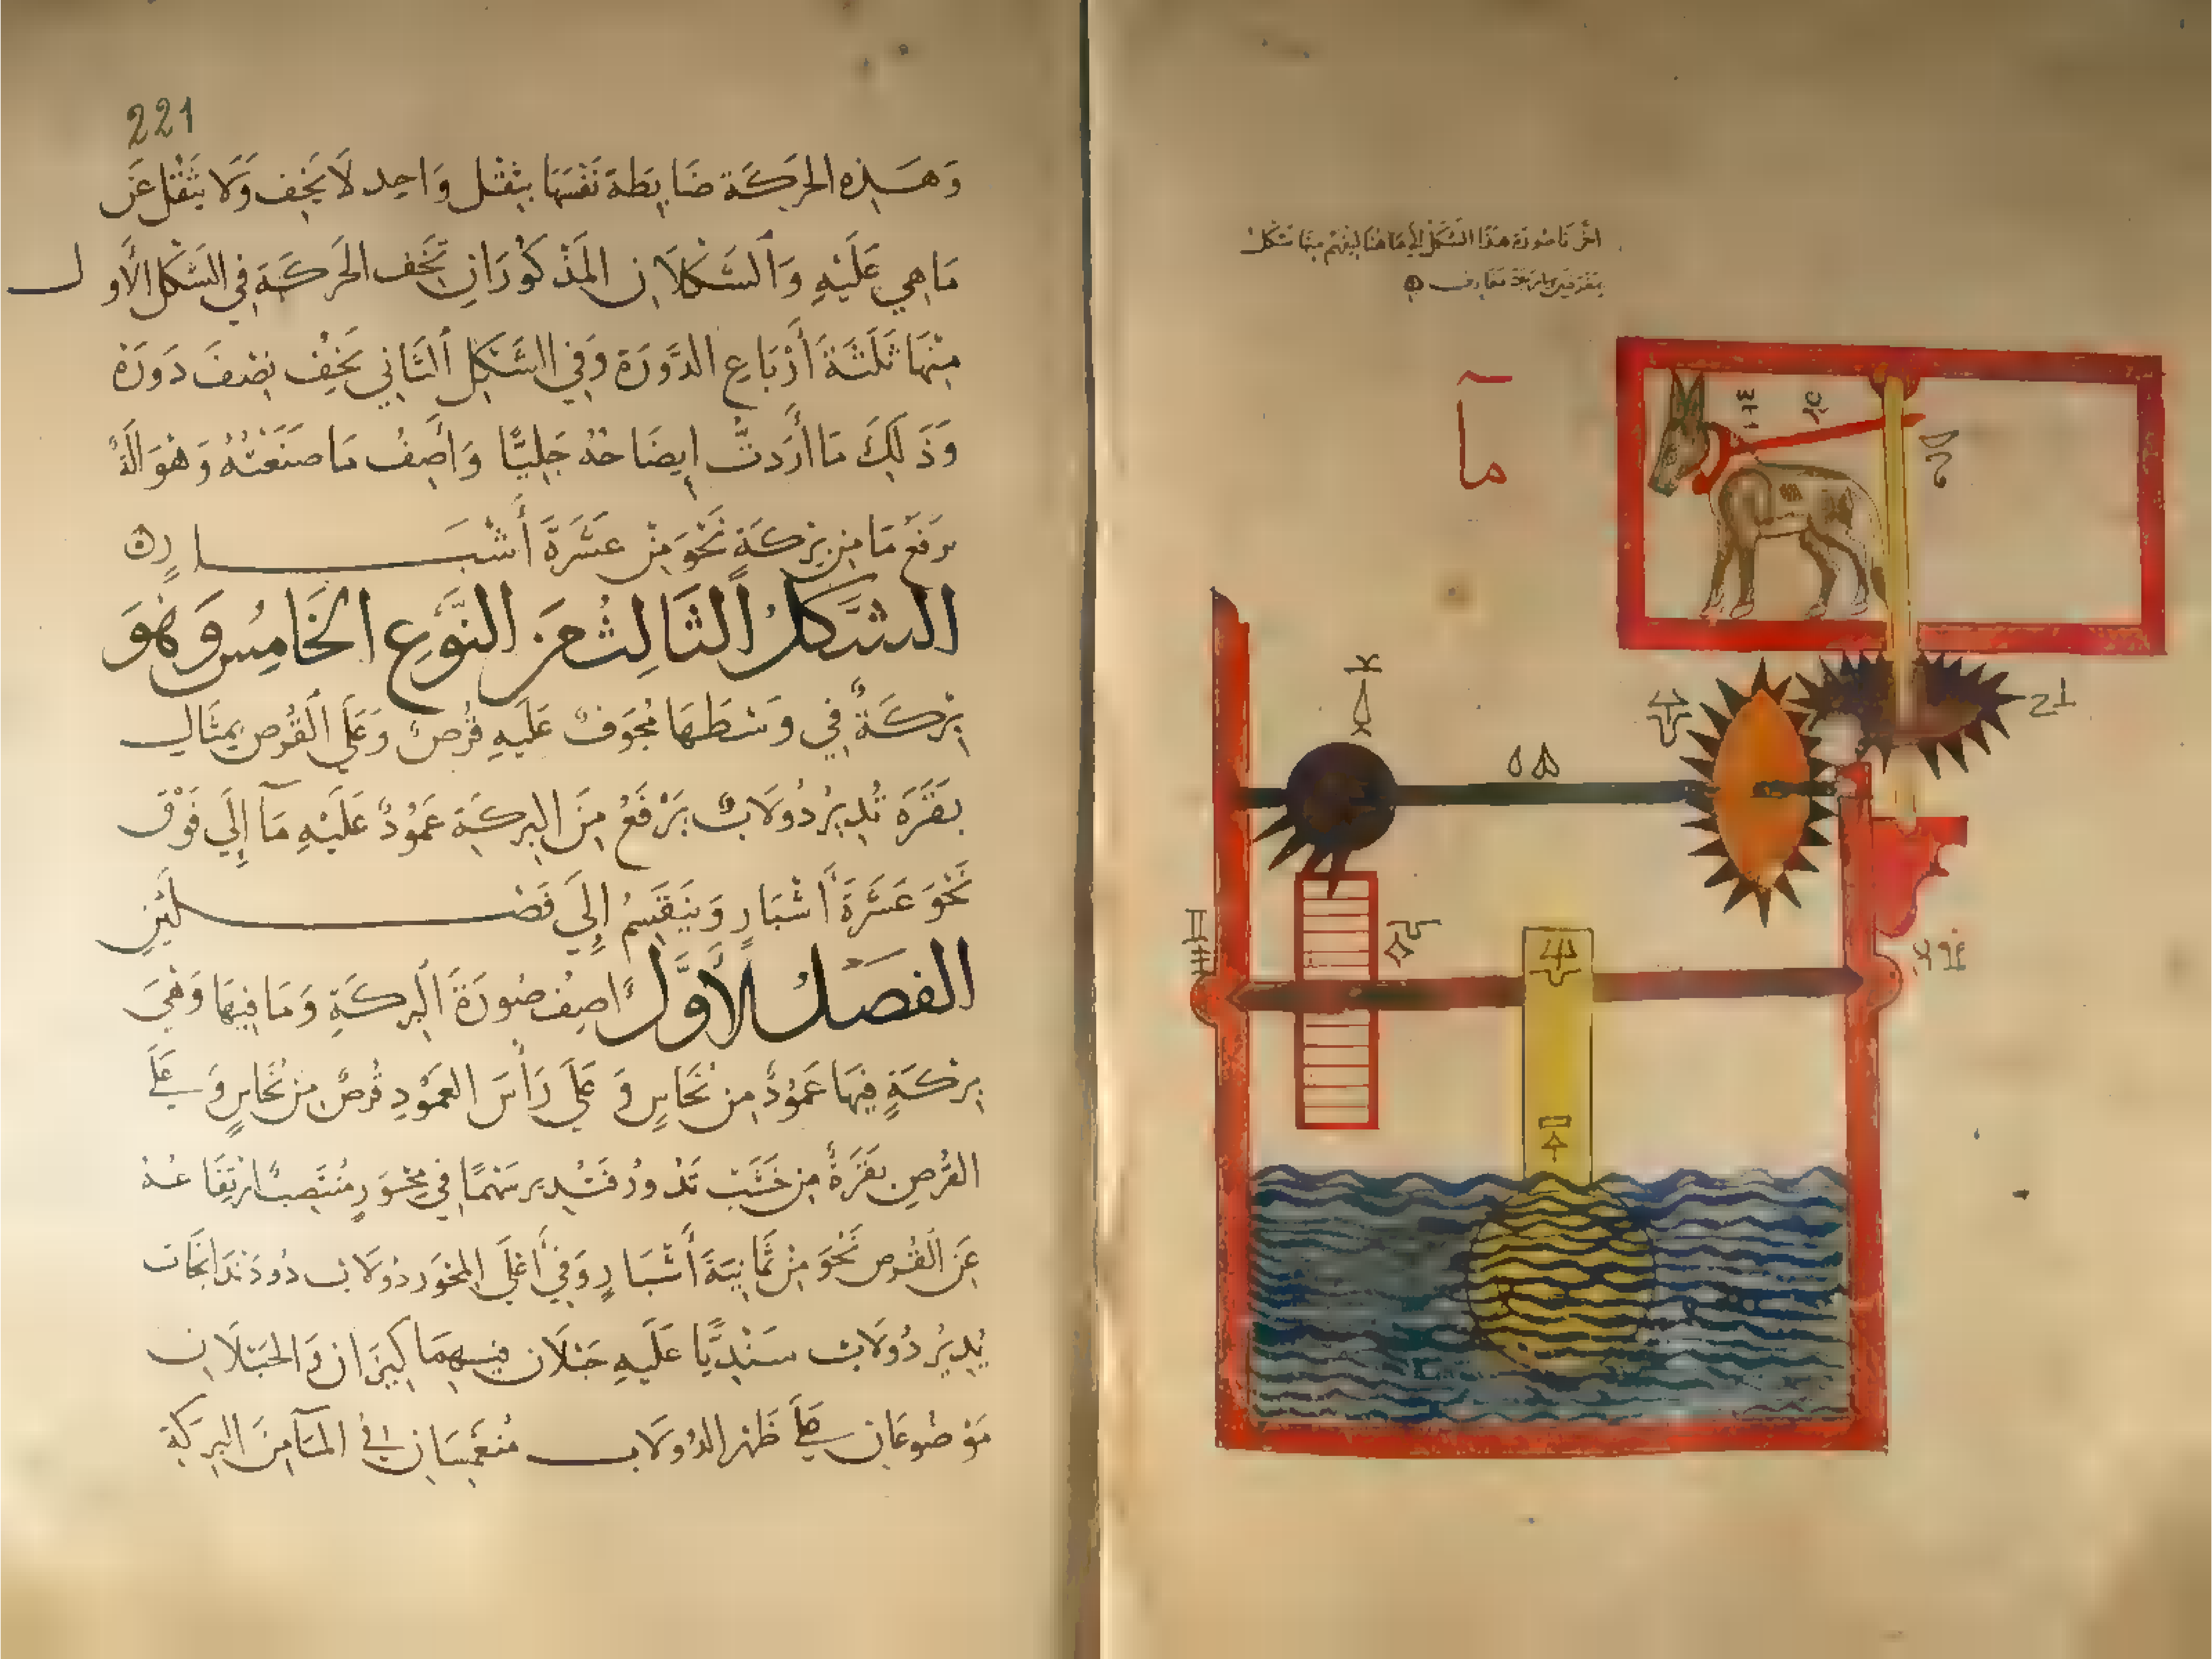 اخرنا صورة هذا الشكل الى ما هنا ليفهم منها شكل
بمغرفتين باربعة مغارف ه
مآ
221
وَهَذِهِ الحَرَكَة ضَابِطَة نَفْسَهَا بِثِقْل وَاحِد لَا يَخِف وَلَا يَثْقُل عَن
مَا هِي عَلَيْهِ وَالشَكْلَان المَذكُورَانِ تَخِف الحَرَكَة فِي الشَكْل الأَول
مِنهَا ثَلَثَةَ أَرْبَاعِ الدَّوْرَة وَفِي الشَكْلِ الثَانِي يَخِف نِصْفَ دَوْرَةْ
وَذَلِكَ مَا أَرَدتُّ اِيضَاحَهُ جَلِيًّا وَاَصِفُ مَا صَنَعْتُهُ وَهُوَ آلَةٌ
تَرفَع مَا مِن بِرْكَةٍ نَحْوَ مِنْ عَشَرَةَ أَشْبَارٍ ه
الشَّكلُ الثَالِث مِنَ النَّوْعِ الخَامِسِ وَهُوَ
بِرْكَةٌ فِي وَسْطِهَا مُجَوَف عَلَيهِ قُرصٌ وَعَلَى القُرْصِ تِمثَال
بَقَرَة تُدِيرُ دُولَابٌ يَرْفَعُ مِنَ البِركَة عَمُودٌ عَلَيْهِ مَآ اِلَى فَوْق
نَحْوَ عَشَرَةَ أَشْبَارٍ وَيَنقَسِمُ اِلَى فَصْلَيْنِ
الفَصْلُ الأَوَّلُ اَصِفُ صُورَةَ البِركَةِ وَمَا فِيهَا وَهْيَ
بِرْكَةٍ فِيهَا عَمُودٌ مِن نُحَاسٍ وَعَلَى رَأْسَ العَمُودِ قُرصٌ مِنْ نُحَاسٍ وَعَلَى
القُرْصِ بَقَرَةٌ مِن خَشَب تَدُورُ فَتُدِير سَهْمًا فِي مِحْوَرٍ مُنتَصِبًا ارْتِفَاعُهُ
عَنِ القُرْصِ نَحْوَ مِنْ ثَمَانِيَةَ أَشْبَارٍ وَفِي أَعْلَى المِحْوَر دُولَاب ذُو دَنْدَانجَات
يُدِيرُ دُولَاب سَنْدِيًّا عَلَيهِ حَبْلَان فِيهِمَا كِيزَان وَالحَبْلَان
مَوْضُوعَان عَلَى ظَهْر الدُولَاب مُنغَمِسَان فِي المَآ مِنَ البِركَةِ